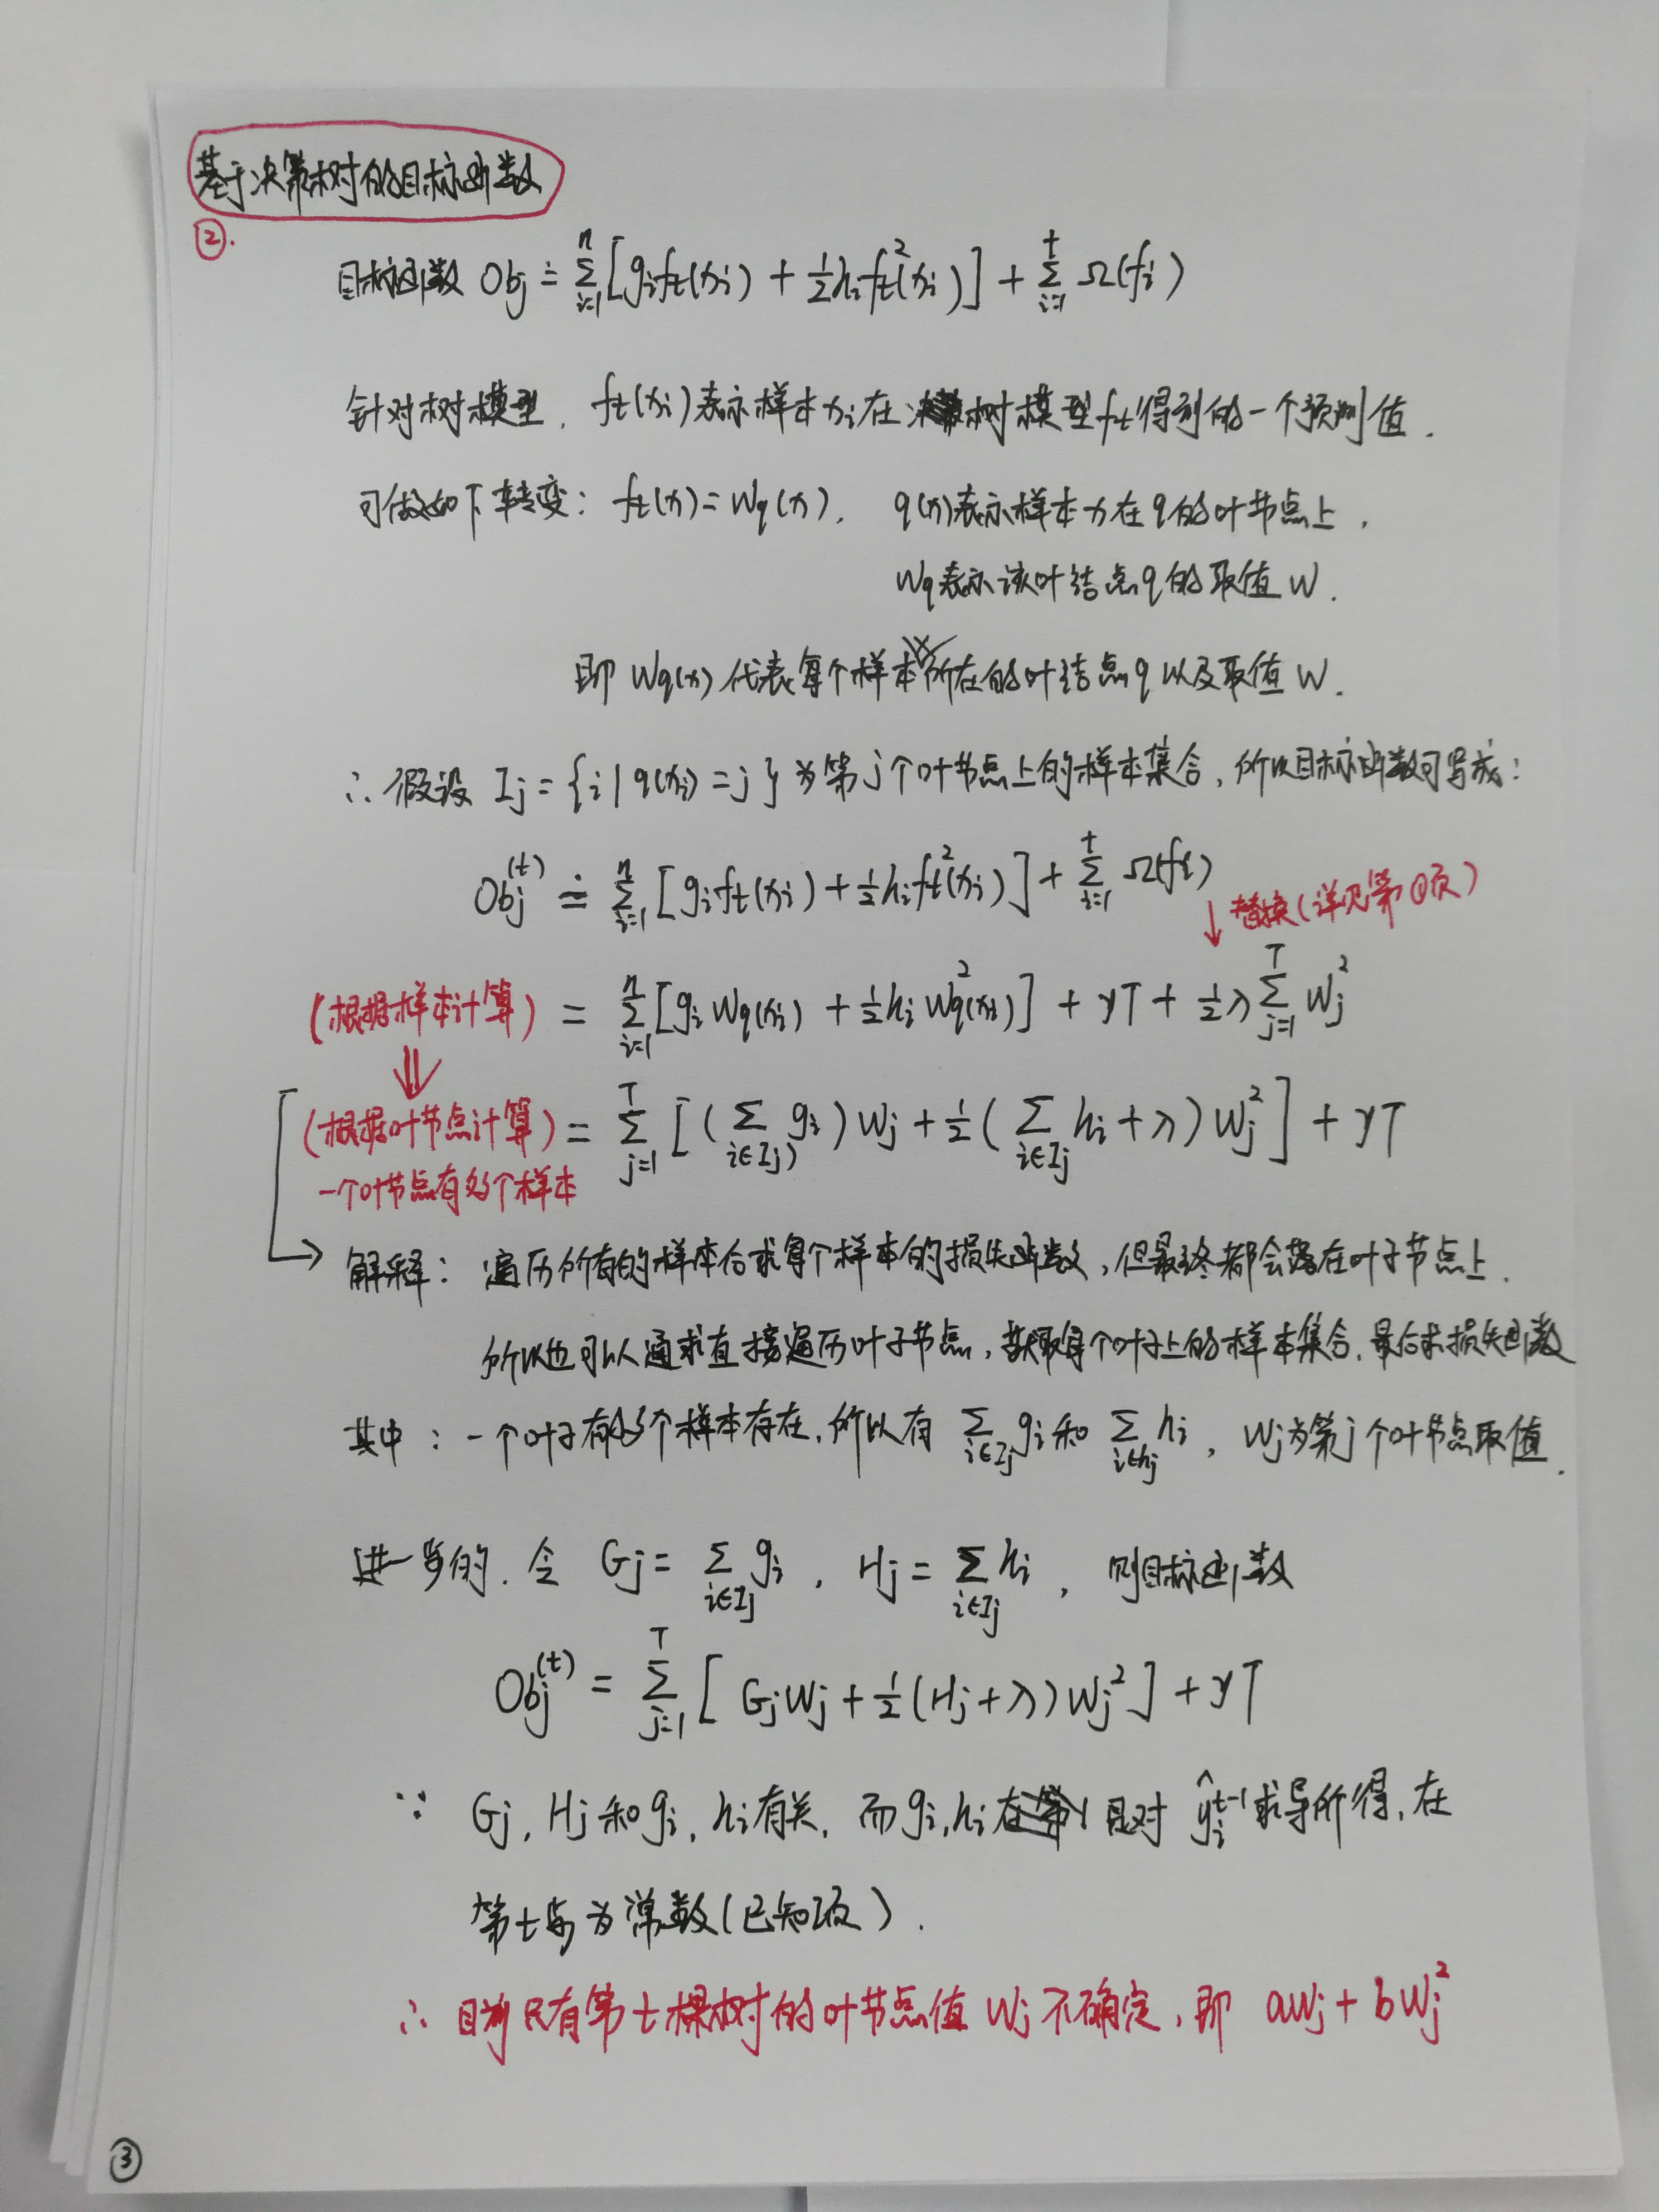 基于决策树的目标函数
②.
目标函数 Obj ≐ ∑_{i=1}^{n} [g_i f_t(x_i) + ½h_i f_t²(x_i)] + ∑_{i=1}^{t} Ω(f_i)
针对树模型, f_t(x_i)表示样本x_i在树模型f_t得到的一个预测值.
可做如下转变: f_t(x) = W_q(x), q(x)表示样本x在q的叶节点上,
W_q表示该叶结点q的取值W.
即 W_q(x) 代表每个样本所在的叶结点q以及取值W.
∴ 假设 I_j = {i | q(x_i) = j} 为第j个叶节点上的样本集合, 所以目标函数可写成:
Obj^(t) ≐ ∑_{i=1}^{n} [g_i f_t(x_i) + ½h_i f_t²(x_i)] + ∑_{i=1}^{t} Ω(f_i)
↓ 替换(详见第①页)
(根据样本计算) = ∑_{i=1}^{n} [g_i W_q(x_i) + ½h_i W²_q(x_i)] + γT + ½λ ∑_{j=1}^{T} W_j²
⇓
(根据叶节点计算) = ∑_{j=1}^{T} [(∑_{i∈I_j} g_i) W_j + ½(∑_{i∈I_j} h_i + λ) W_j²] + γT
一个叶节点有多个样本
→ 解释: 遍历所有的样本后求每个样本的损失函数, 但最终都会落在叶子节点上.
所以也可以通求直接遍历叶子节点, 获取每个叶子上的样本集合, 最后求损失函数
其中: 一个叶子有多个样本存在, 所以有 ∑_{i∈I_j} g_i 和 ∑_{i∈h_j} h_i, W_j为第j个叶节点取值.
进一步的, 令 G_j = ∑_{i∈I_j} g_i, H_j = ∑_{i∈I_j} h_i, 则目标函数
Obj^(t) = ∑_{j=1}^{T} [G_j W_j + ½(H_j + λ) W_j²] + γT
∵ G_j, H_j 和 g_i, h_i 有关, 而 g_i, h_i 是对 ŷ_i^{t-1} 求导所得, 在
第t步为常数(已知项).
∴ 目前只有第t棵树的叶节点值 W_j 不确定, 即 aW_j + bW_j²
③